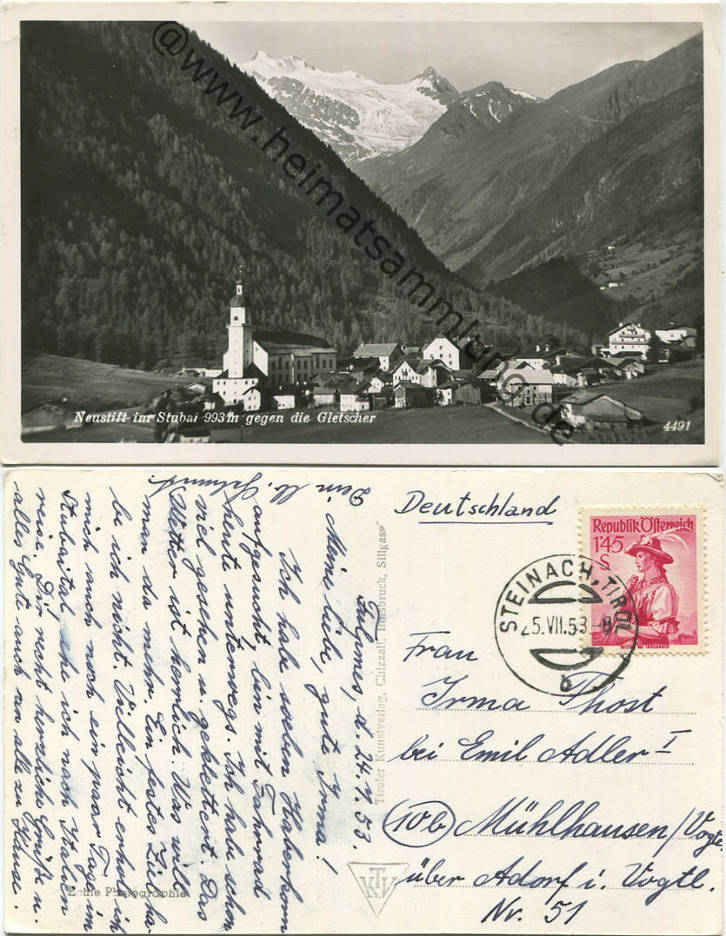 @www.heimatsammlung.de
Neustift im Stubai 993m gegen die Gletscher
4491
Deutschland
Republik Österreich
1'45
S
STEINACH, TIROL
25.VII.53-8
b
Frau
Irma Thost
bei Emil Adler I
(10b) Mühlhausen/Vogtl.
über Adorf i. Vogtl.
Nr. 51
Tiroler Kunstverlag, Chizzali, Innsbruck, Sillgasse
TKV
Echte Photographie
Fulpmes, d. 24.7.53.
Meine liebe, gute Irma!
Ich habe soeben Haberkorn
aufgesucht, bin mit Fahrrad
heute unterwegs. Ich habe schon
viel gesehen u. geklettert. Das
Wetter ist herrlich. Was will
man da mehr. Ein festes Ziel ha-
be ich nicht. Vielleicht erhole ich
mich auch noch ein paar Tage im
Stubaital ehe ich nach Italien
reise. Dir recht herzliche Grüße u.
alles Gute auch an alle zu Hause.
Dein